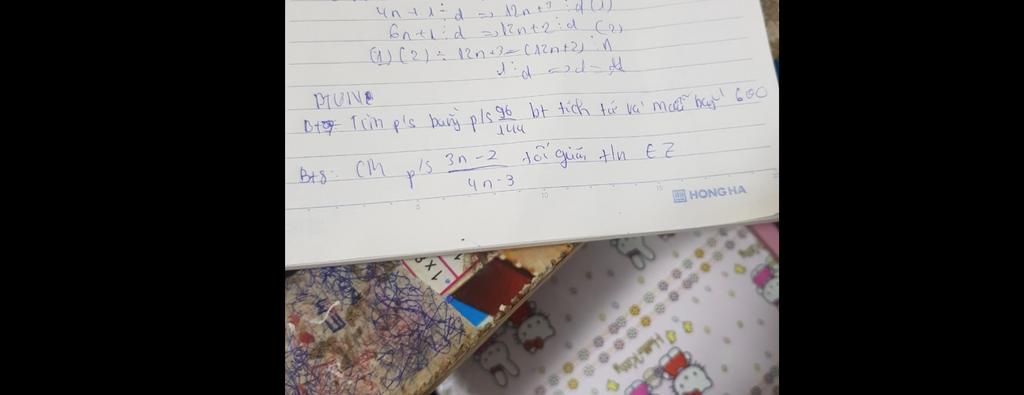 4n + 1 ⋮ d => 12n + 3 ⋮ d (1)
6n + 1 ⋮ d => 12n + 2 ⋮ d (2)
(1) (2) 12n + 3 - (12n + 2) ⋮ n
1 ⋮ d => d =
BTVN
Bt7 Tìm p/s bằng p/s 96/144 bt tích tử và mẫu bằng 600
Bt8: CM p/s 3n - 2 / 4n - 3 tối giản ∈ Z
5 10 15
HONG HA